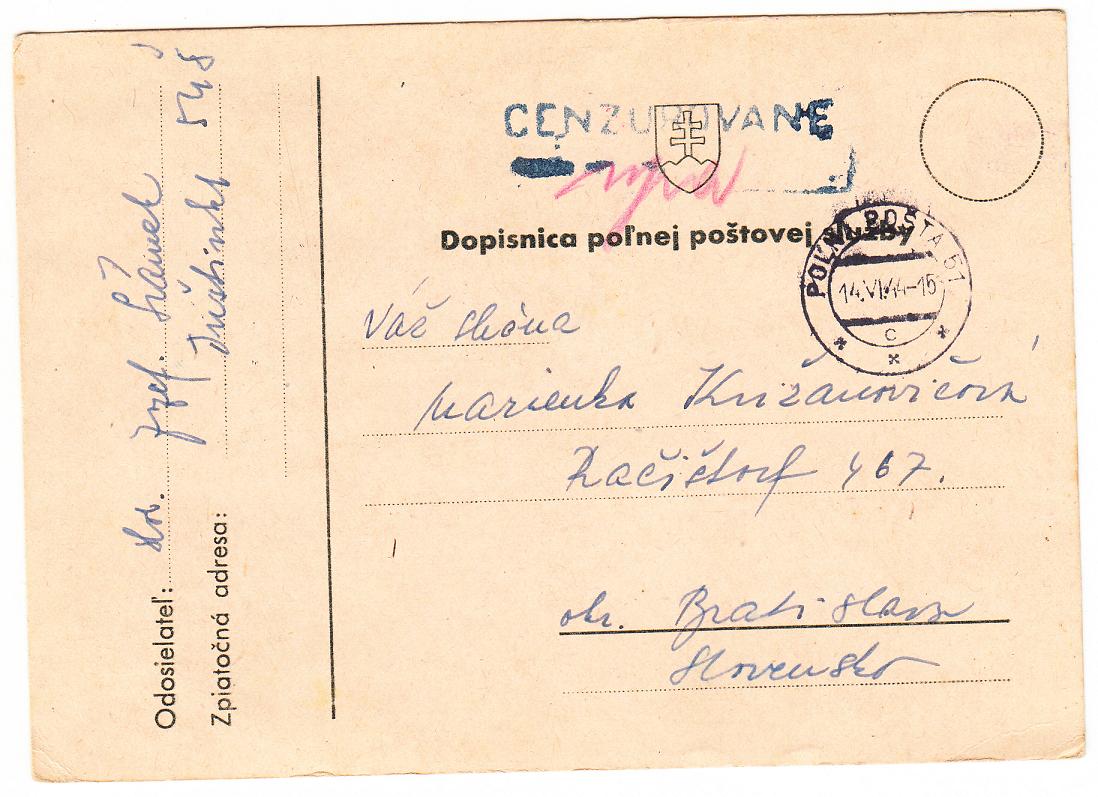 CENZUROVANÉ
Dopisnica poľnej poštovej služby
POĽNÁ POŠTA 51
14.VI.44-15
C
Váž slečna
Marienka Križanovičová
Račištorf 467.
okr. Bratislava
Slovensko
Odosielateľ: slob. Jozef.
Zpiatočná adresa: